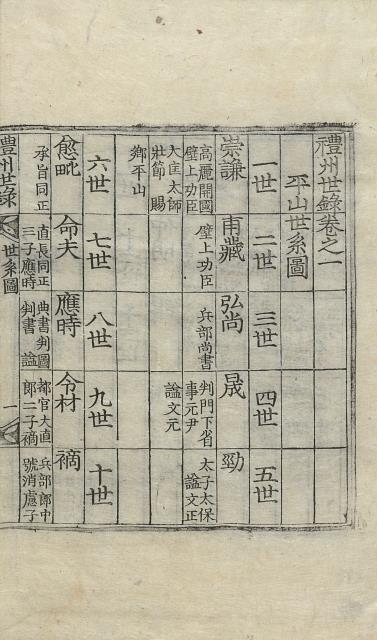 禮州世錄卷之一
平山世系圖
一世 二世 三世 四世 五世
崇謙 甫藏 弘尚 晟 勁
高麗開國 壁上功臣 兵部尚書 判門下省 太子太保
壁上功臣 事元尹 謚文正
大匡太師 謚文元
壯節 賜
鄉平山
六世 七世 八世 九世 十世
愈毗 命夫 應時 令材 禠
承旨同正 直長同正 典書判圖 都官大直 兵部郎中
三子應時 判書 謚 郎二子禠 號消慮子
禮州世錄 世系圖 一